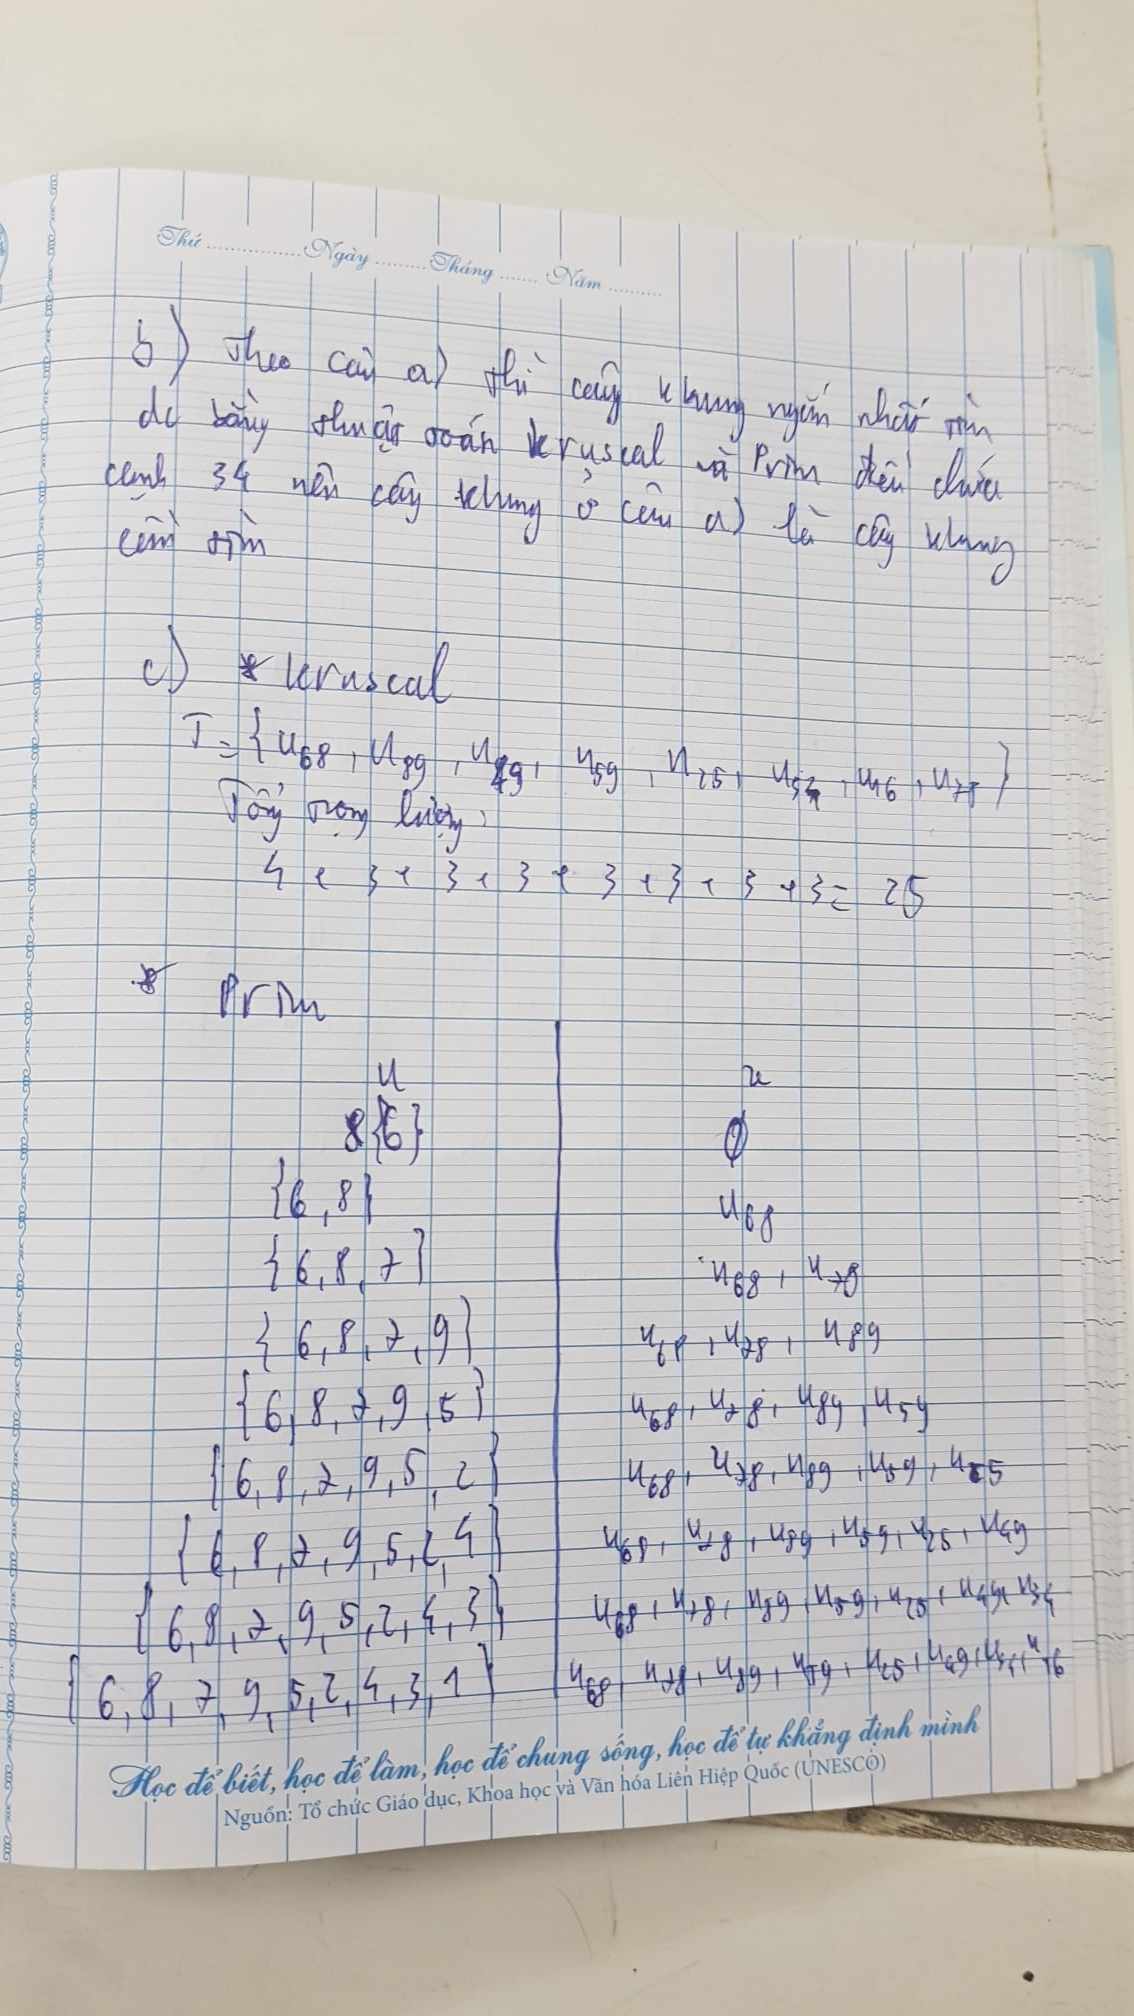 Thứ ............ Ngày ......... Tháng ....... Năm ..........
b) Theo câu a) thì cây khung ngắn nhất tìm
dc bằng thuật toán kruscal và Prim đều chứa
cạnh 34 nên cây khung ở câu a) là cây khung
cần tìm
c) * kruscal
T = { u68 , u89 , u49 , u59 , u25 , u34 , u16 , u78 }
Tổng trọng lượng :
4 + 3 + 3 + 3 + 3 + 3 + 3 + 3 = 25
* Prim
u
u
{6}
∅
{6, 8}
u68
{6, 8, 7}
u68 , u78
{6, 8, 7, 9}
u68 , u78 , u89
{6, 8, 7, 9, 5}
u68 , u78 , u89 , u59
{6, 8, 7, 9, 5, 2}
u68 , u78 , u89 , u59 , u25
{6, 8, 7, 9, 5, 2, 4}
u68 , u78 , u89 , u59 , u25 , u49
{6, 8, 7, 9, 5, 2, 4, 3}
u68 , u78 , u89 , u59 , u25 , u49 , u34
{6, 8, 7, 9, 5, 2, 4, 3, 1}
u68 , u78 , u89 , u59 , u25 , u49 , u34 , u16
Học để biết, học để làm, học để chung sống, học để tự khẳng định mình
Nguồn: Tổ chức Giáo dục, Khoa học và Văn hóa Liên Hiệp Quốc (UNESCO)